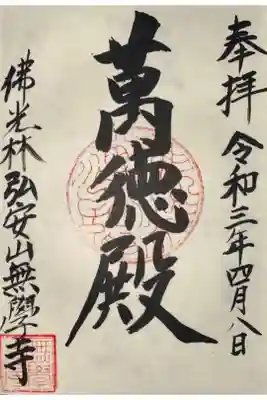 奉拝 令和三年四月八日
萬德殿
佛光林弘安山無學寺